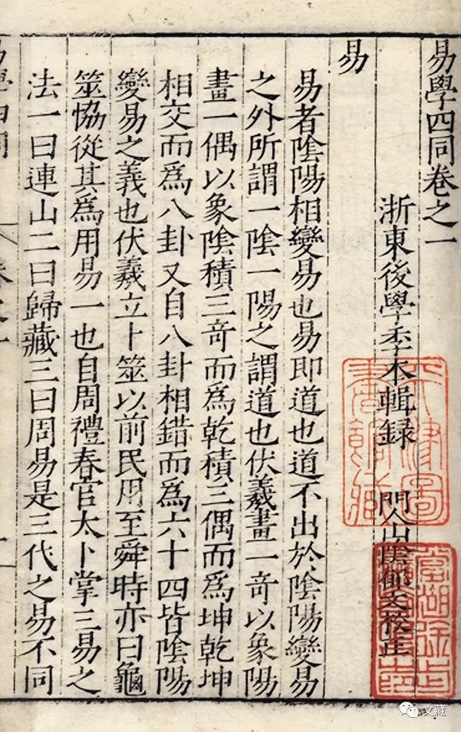 易學四同卷之一
浙東後學季本輯錄 門人山陰 校正
易
易者陰陽相變易也易即道也道不出於陰陽變易
之外所謂一陰一陽之謂道也伏羲畫一奇以象陽
畫一偶以象陰積三奇而爲乾積三偶而爲坤乾坤
相交而爲八卦又自八卦相錯而爲六十四皆陰陽
變易之義也伏羲立卜筮以前民用至舜時亦曰龜
筮協從其爲用易一也自周禮春官太卜掌三易之
法一曰連山二曰歸藏三曰周易是三代之易不同